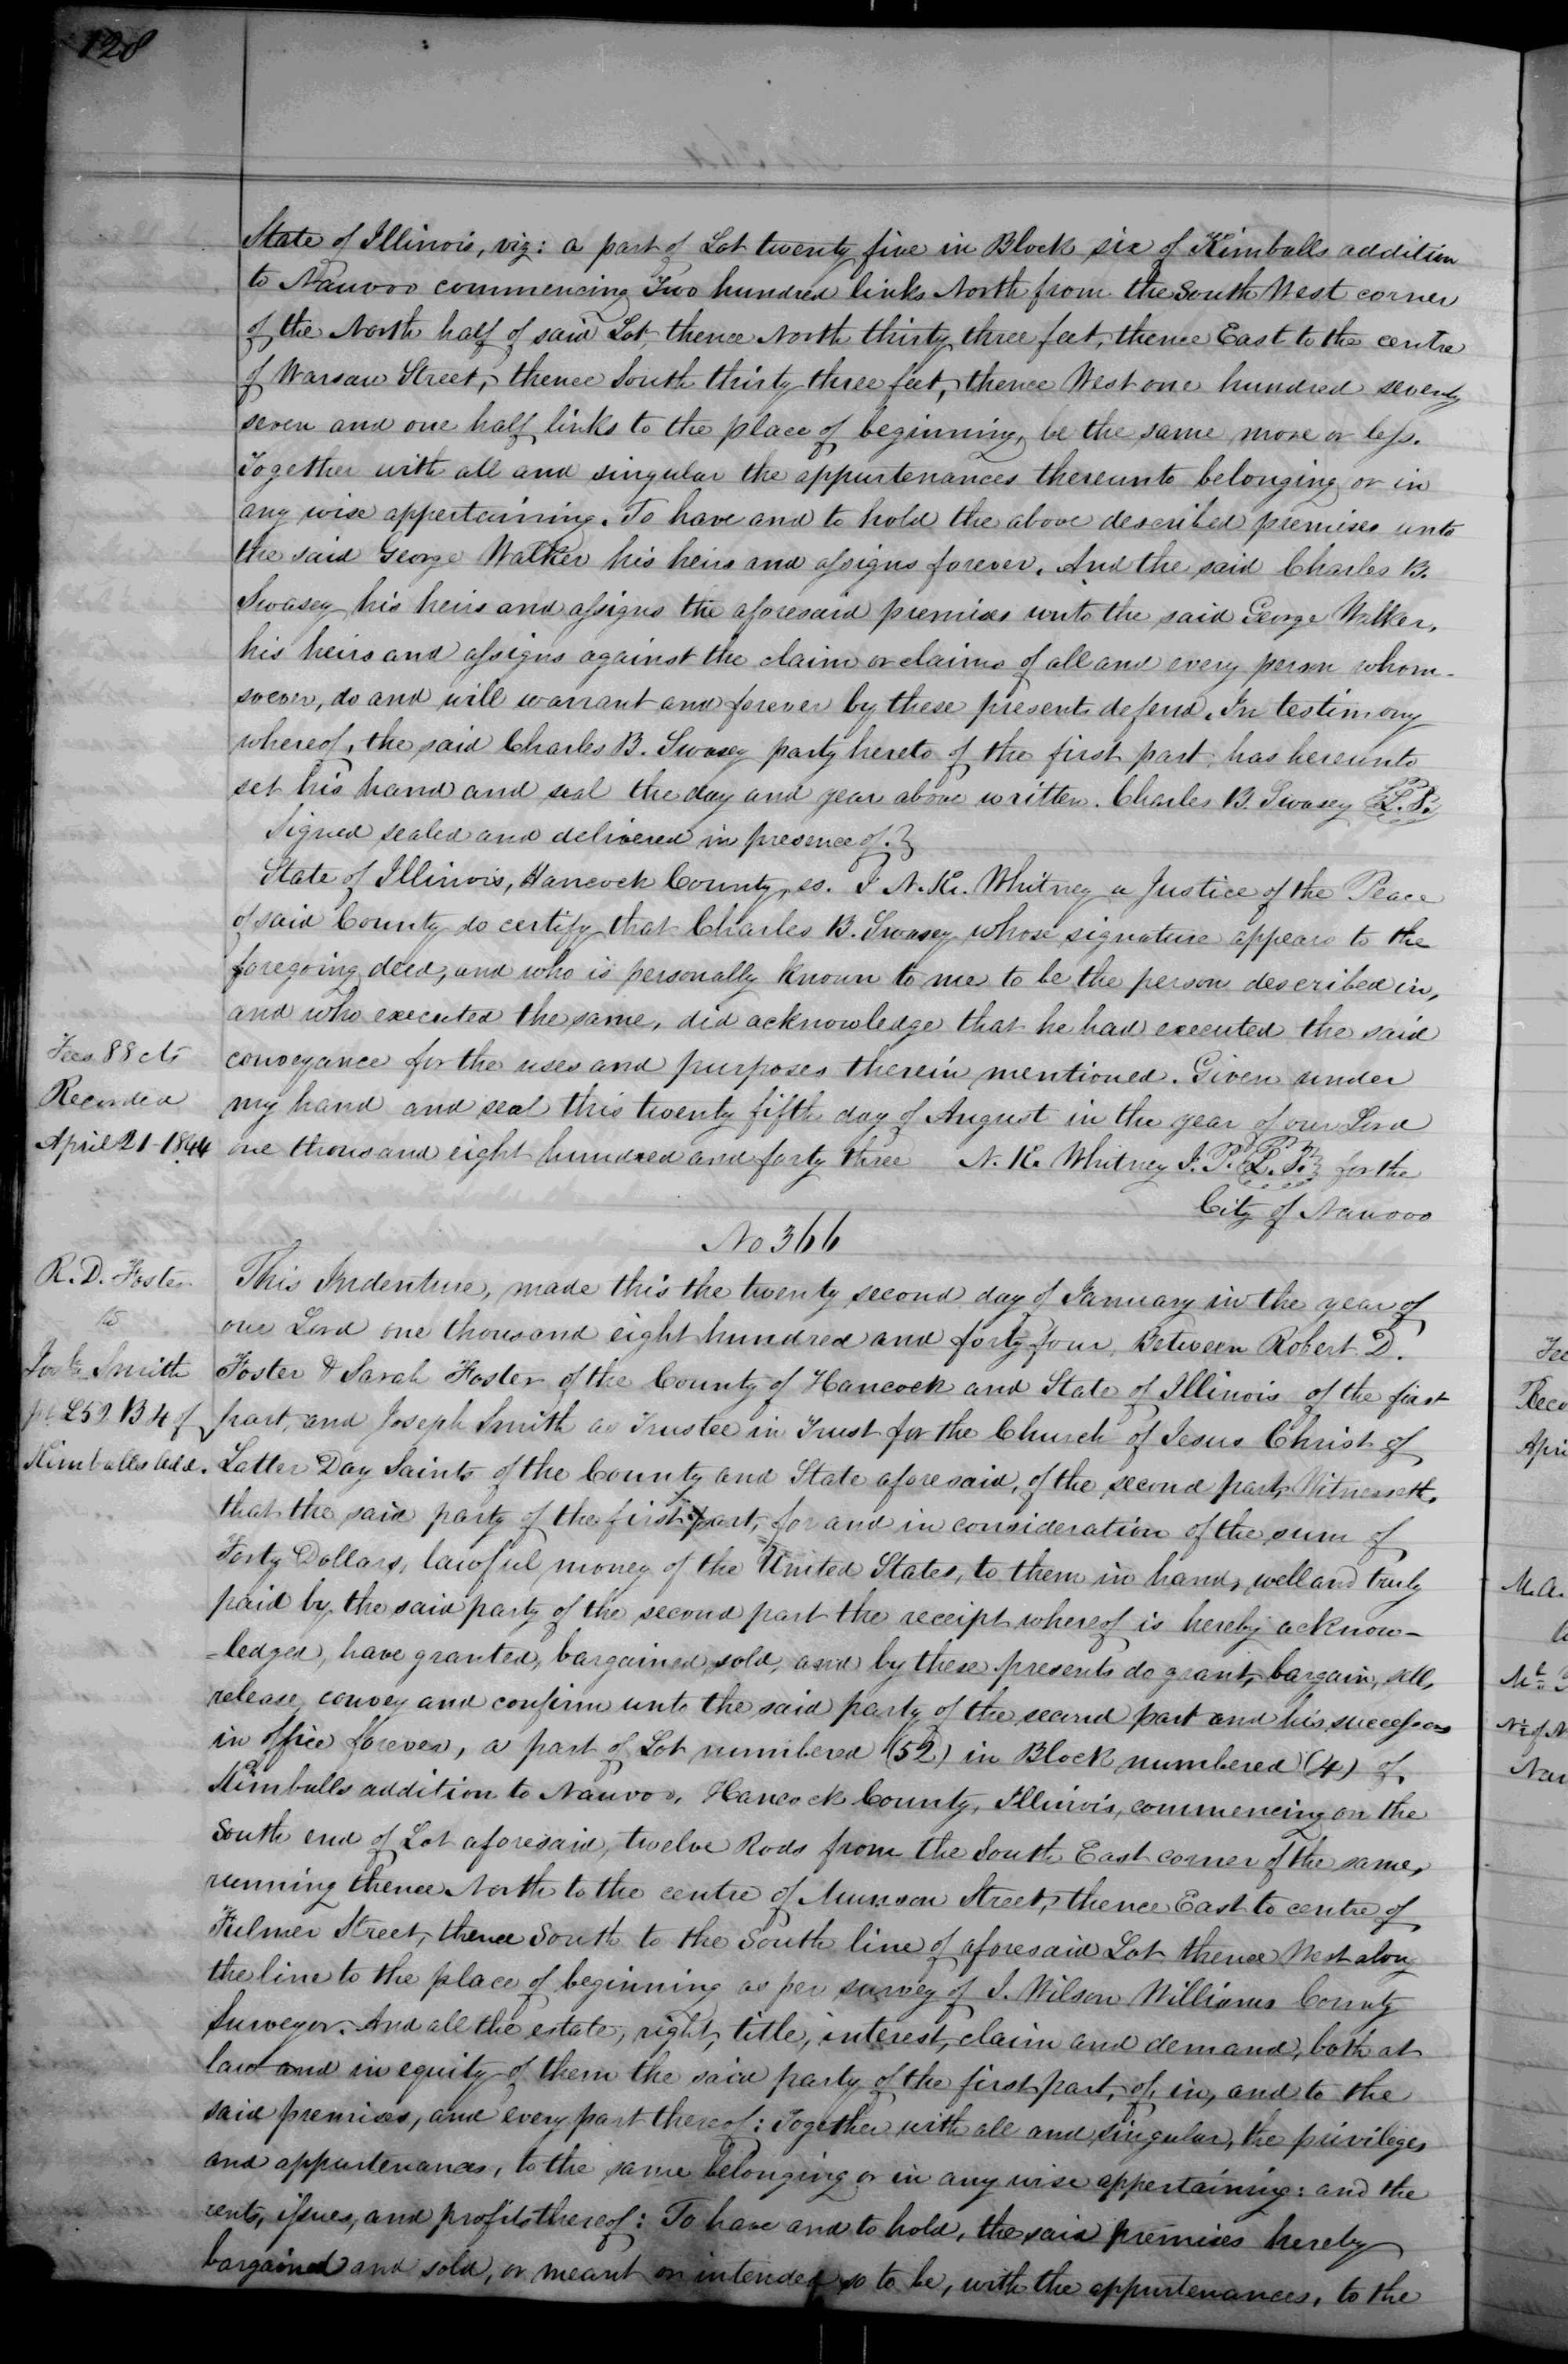 128
State of Illinois, viz: a part of Lot twenty five in Block six of Kimballs addition
to Nauvoo commencing Two hundred links North from the South West corner
of the North half of said Lot, thence North thirty three feet, thence East to the centre
of Warsaw Street, thence South thirty three feet, thence West one hundred seventy
seven and one half links to the place of beginning, be the same more or less.
Together with all and singular the appurtenances thereunto belonging or in
any wise appertaining. To have and to hold the above described premises unto
the said George Walker his heirs and assigns forever. And the said Charles B.
Swasey his heirs and assigns the aforesaid premises unto the said George Walker,
his heirs and assigns against the claim or claims of all and every person whom-
soever, do and will warrant and forever by these presents defend. In testimony
whereof, the said Charles B. Swasey party hereto of the first part has hereunto
set his hand and seal the day and year above written. Charles B. Swasey L.S.
Signed sealed and delivered in presence of.}
State of Illinois, Hancock County, ss. I N. K. Whitney a Justice of the Peace
of said County do certify that Charles B. Swasey whose signature appears to the
foregoing deed, and who is personally known to me to be the person described in,
and who executed the same, did acknowledge that he had executed the said
Fees 88 cts
conveyance for the uses and purposes therein mentioned. Given under
Recorded
my hand and seal this twenty fifth day of August in the year of our Lord
April 21-1844
one thousand eight hundred and forty three N. K. Whitney J. P. L.S. for the
City of Nauvoo
No 366
R. D. Foster
to
Josh Smith
pt L52 B4 of
Kimballs Add.
This Indenture, made this the twenty second day of January in the year of
our Lord one thousand eight hundred and forty four, Between Robert D.
Foster & Sarah Foster of the County of Hancock and State of Illinois of the first
part, and Joseph Smith as Trustee in Trust for the Church of Jesus Christ of
Latter Day Saints of the County and State aforesaid, of the second part, Witnesseth,
that the said party of the first part, for and in consideration of the sum of
Forty Dollars, lawful money of the United States, to them in hand, well and truly
paid by the said party of the second part the receipt whereof is hereby acknow-
=ledged, have granted, bargained, sold, and by these presents do grant, bargain, sell,
release, convey and confirm unto the said party of the second part and his successors
in office forever, a part of Lot numbered (52) in Block numbered (4) of
Kimballs addition to Nauvoo, Hancock County, Illinois, commencing on the
South end of Lot aforesaid, twelve Rods from the South East corner of the same,
running thence North to the centre of Munson Street, thence East to centre of
Fulmer Street, thence South to the South line of aforesaid Lot thence West along
the line to the place of beginning as per survey of J. Wilson Williams County
Surveyor. And all the estate, right, title, interest, claim and demand, both at
law and in equity of them the said party of the first part, of, in, and to the
said premises, and every part thereof: Together with all and singular, the privileges
and appurtenances, to the same belonging or in any wise appertaining: and the
rents, issues, and profits thereof: To have and to hold, the said premises hereby
bargained and sold, or meant or intended so to be, with the appurtenances, to the